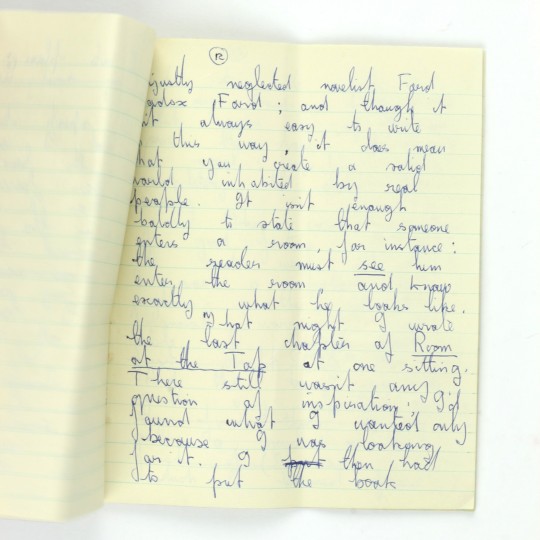 12
justly neglected novelist Ford
Madox Ford; and though it
isn't always easy to write
in this way, it does mean
that you create a solid
world inhabited by real
people. It isn't enough
baldly to state that someone
enters a room, for instance:
the reader must see him
enter the room and know
exactly what he looks like.
That night I wrote
the last chapter of Room
at the Top at one sitting.
There still wasn't any
question of inspiration; I'd
found what I wanted only
because I was looking
for it. I then had
to put the book